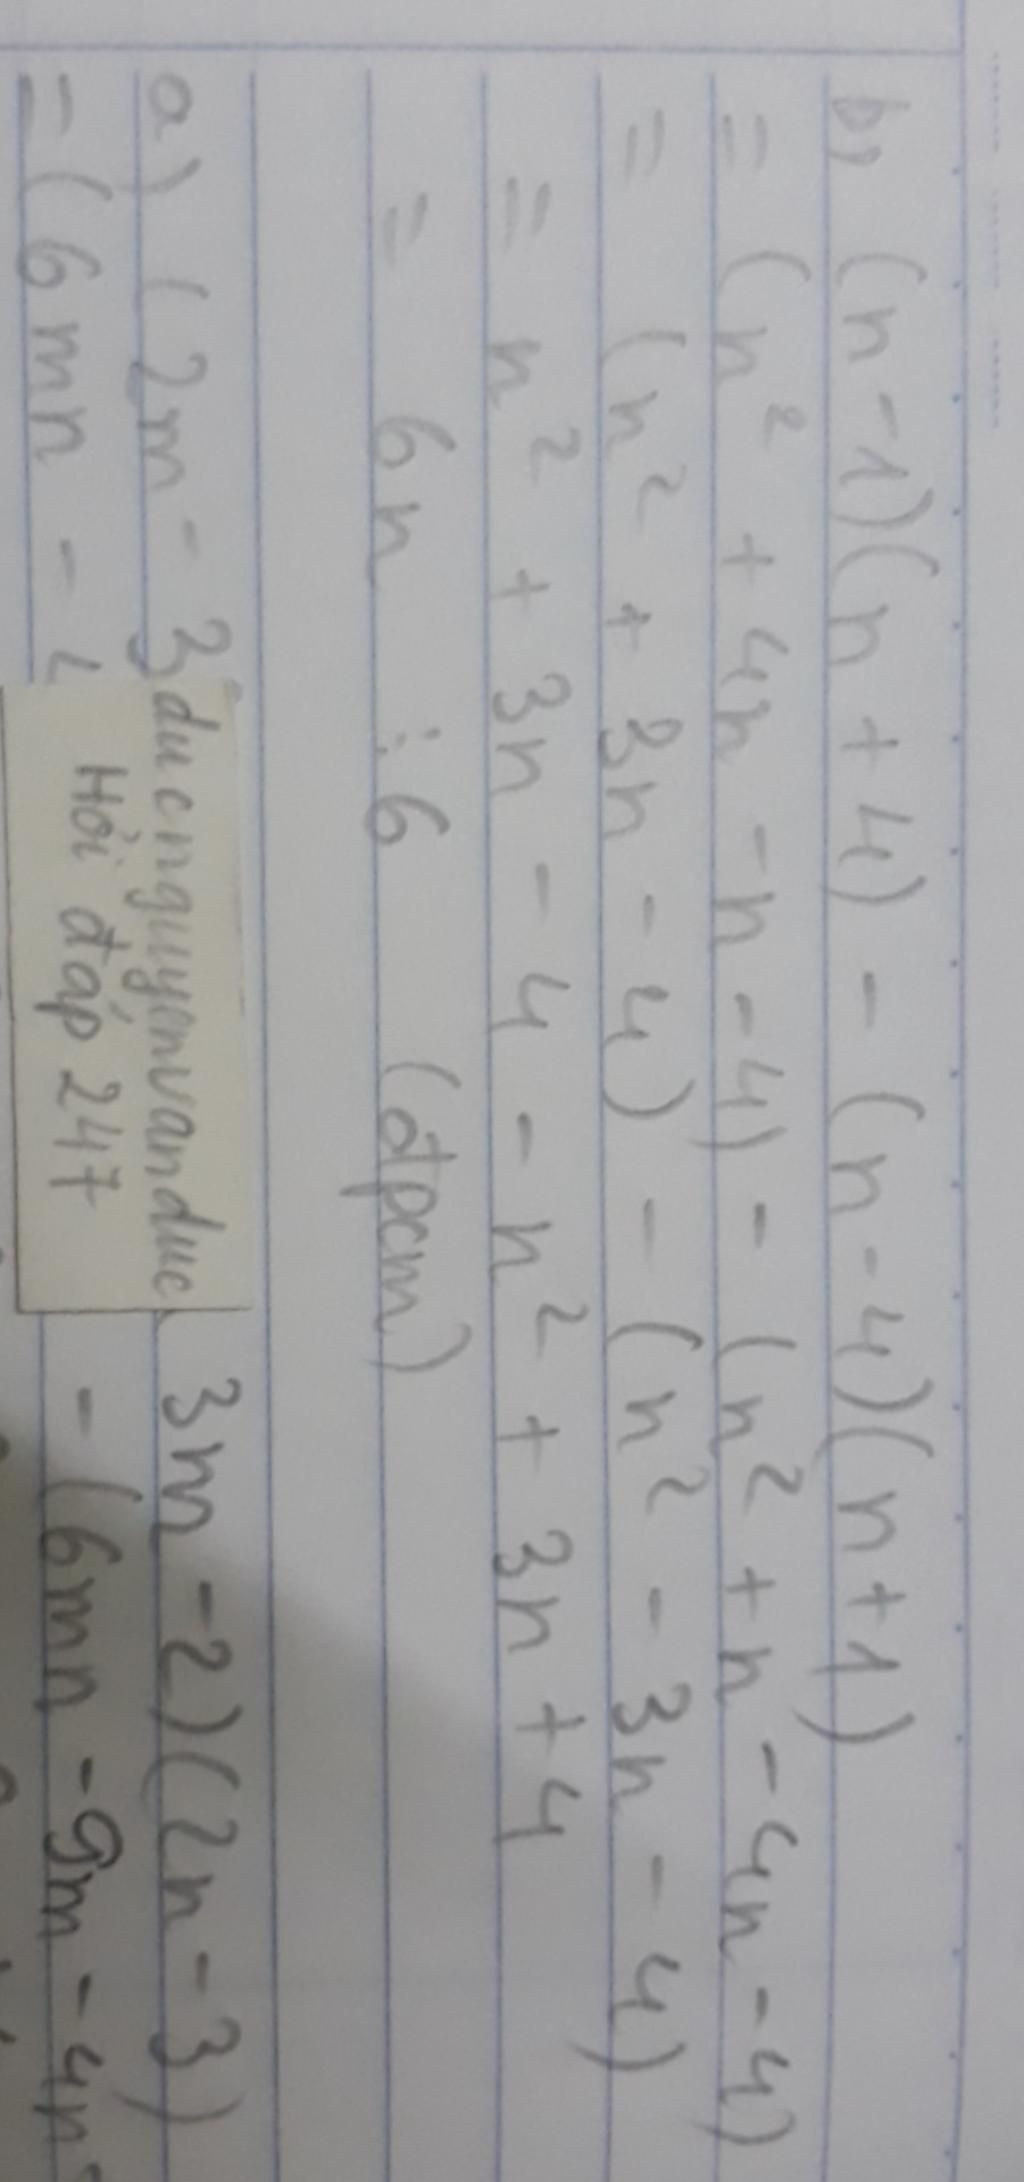 b) (n-1)(n+4) - (n-4)(n+1)
= (n² + 4n - n - 4) - (n² + n - 4n - 4)
= (n² + 3n - 4) - (n² - 3n - 4)
= n² + 3n - 4 - n² + 3n + 4
= 6n ⋮ 6 (đpcm)
a) (2m - 3 3m - 2)(2n - 3)
= (6mn - - (6mn - 9m - 4n
ducnguyenvanduc
Hỏi đáp 247